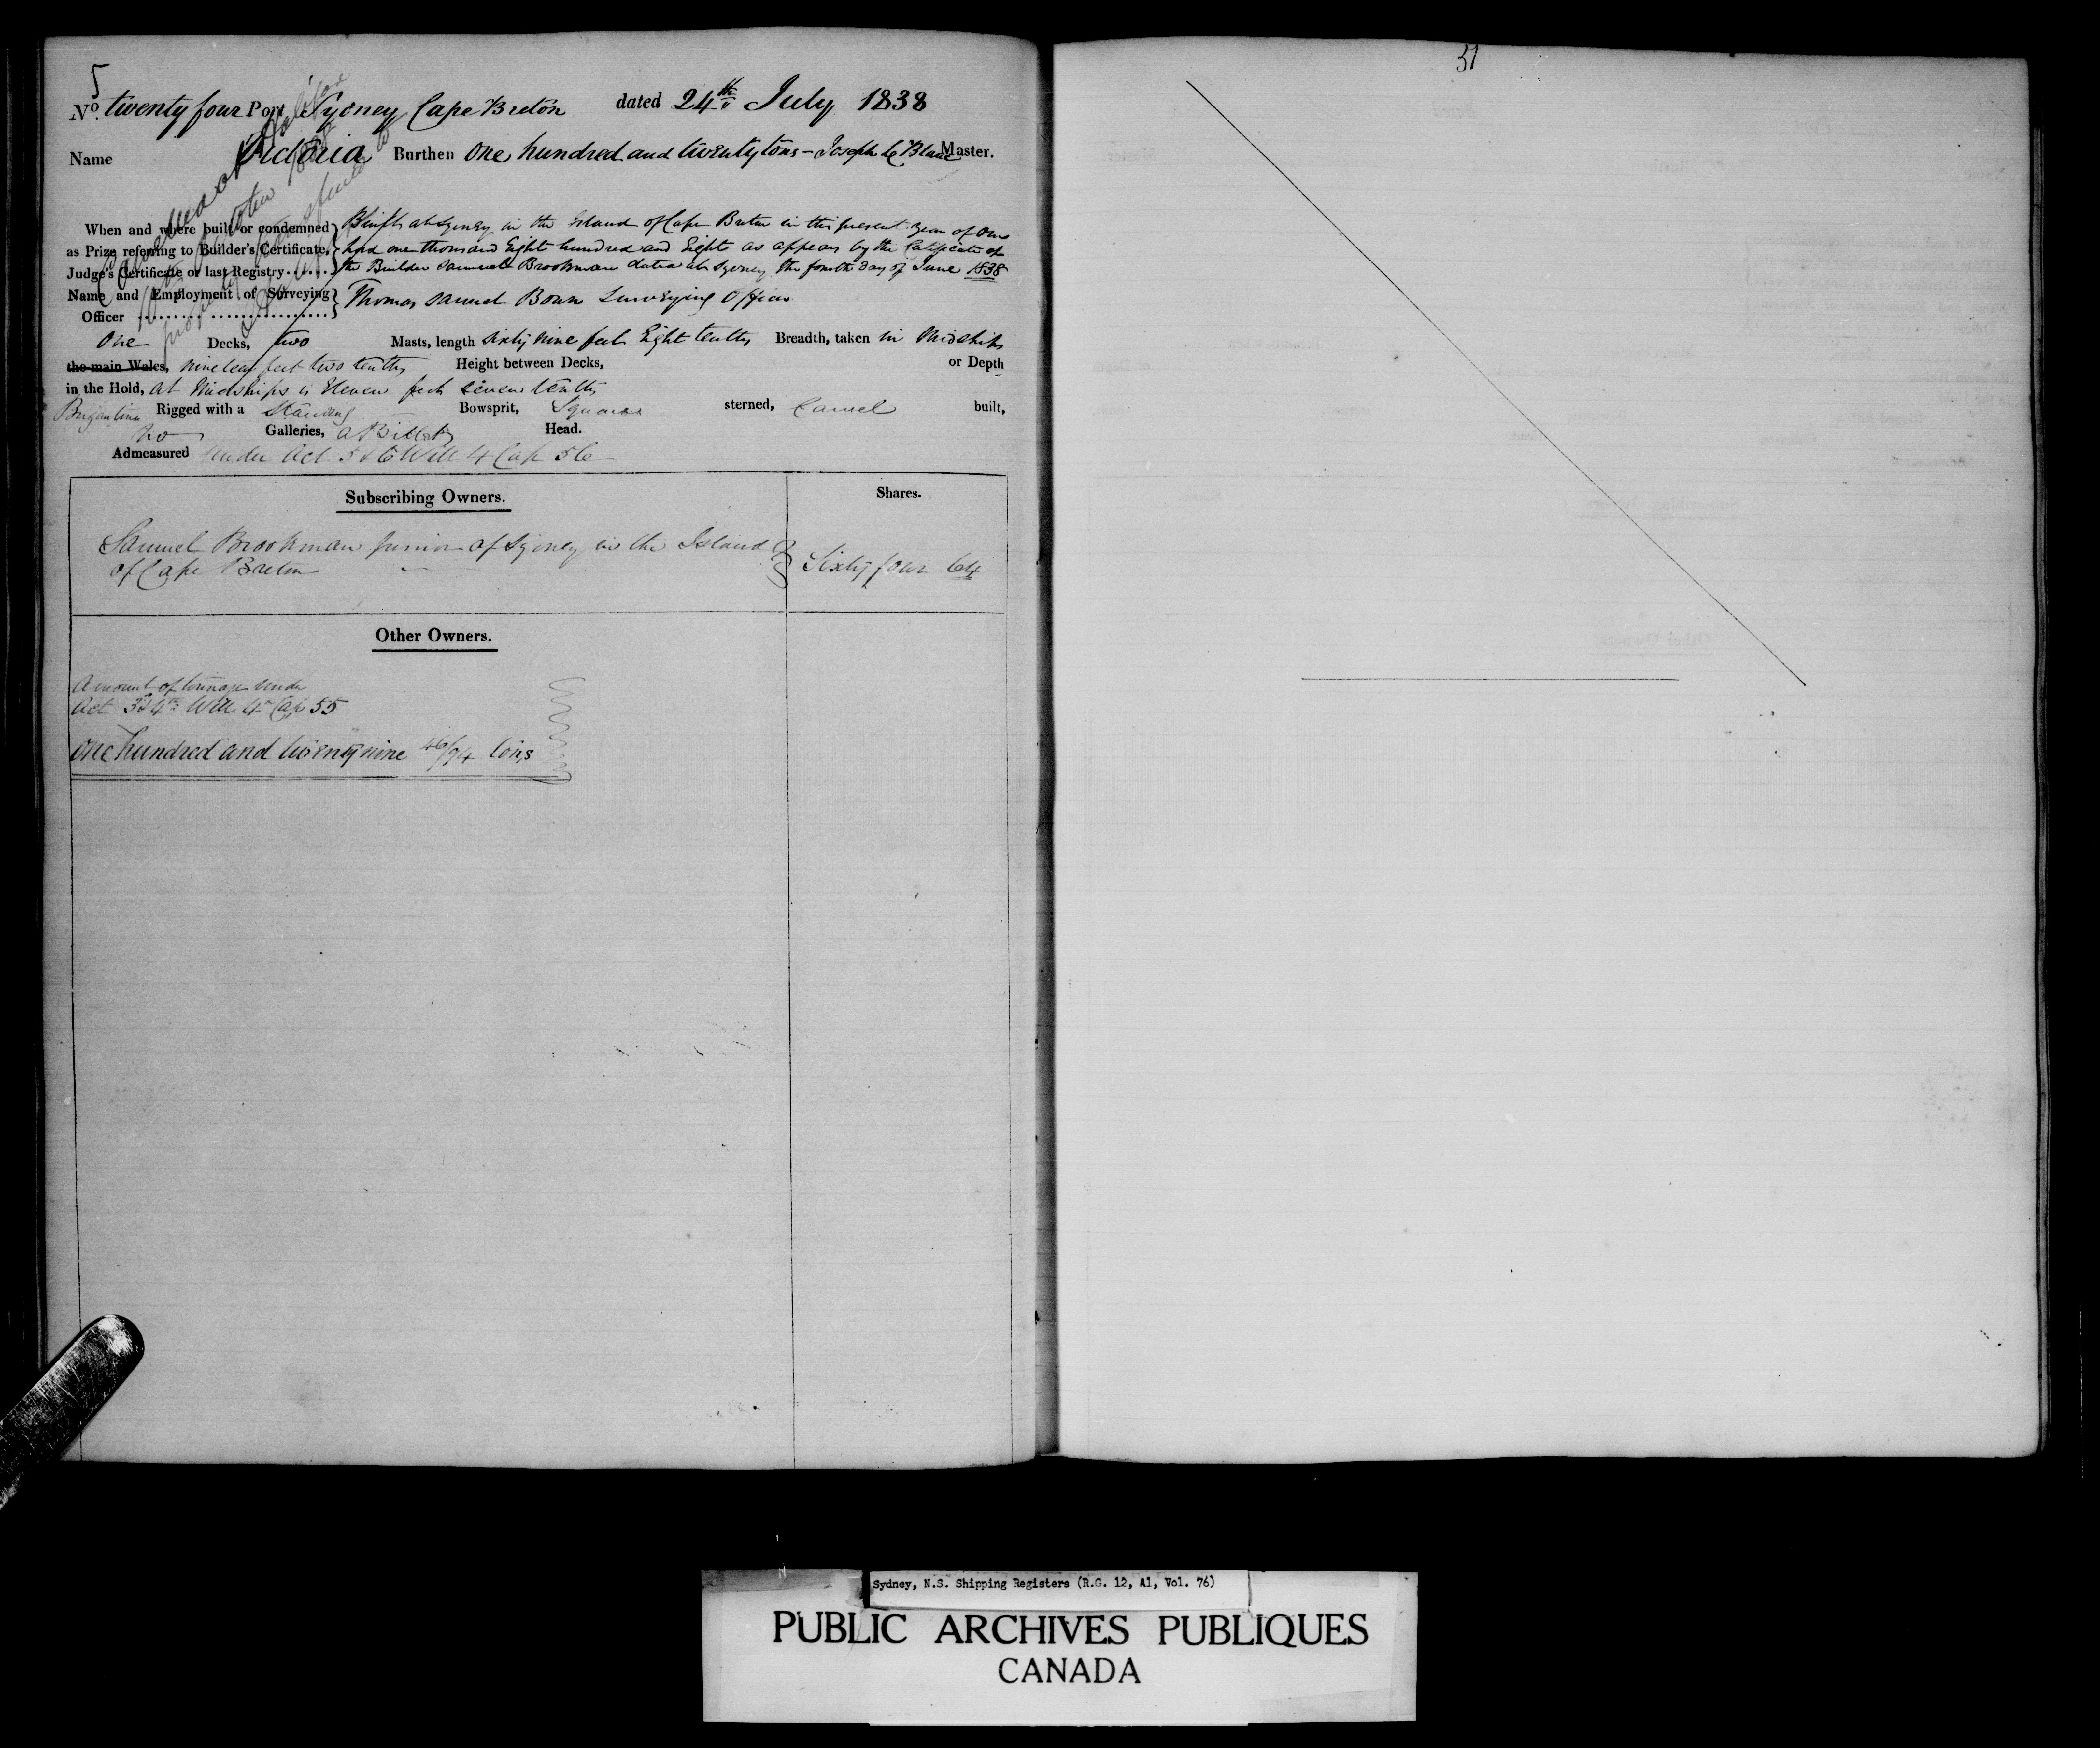 5
No. twenty four Port Sydney, Cape Breton dated 24th July 1838
Name Victoria Burthen One hundred and twenty tons - Joseph Le Blanc Master.
When and where built or condemned as Prize referring to Builder's Certificate, Judge's Certificate or last Registry
Built at Sydney in the Island of Cape Breton in this present year of our
Lord one thousand Eight hundred and Eight as appears by the Certificate of
the Builder Samuel Brookman dated at Sydney the fourth day of June 1838
Name and Employment of Surveying Officer Thomas Samuel Bown Surveying Officer
One Decks, two Masts, length sixty nine feet Eight tenths Breadth, taken in Midships
the main Wales, nineteen feet two tenths Height between Decks, or Depth
in the Hold, at Midships is Eleven feet seven tenths
Brigantine Rigged with a Standing Bowsprit, Square sterned, Carvel built,
no Galleries, a Billet Head.
Admeasured under Act 5 & 6 Will 4 Cap 56
Subscribing Owners. Shares.
Samuel Brookman Junior of Sydney in the Island
of Cape Breton Sixty four 64
Other Owners.
Amount of tonnage under
Act 3d & 4th Will 4th Cap 55
One hundred and twenty nine 46/94 tons
51
Sydney, N.S. Shipping Registers (R.G. 12, A1, Vol. 76)
PUBLIC ARCHIVES PUBLIQUES
CANADA